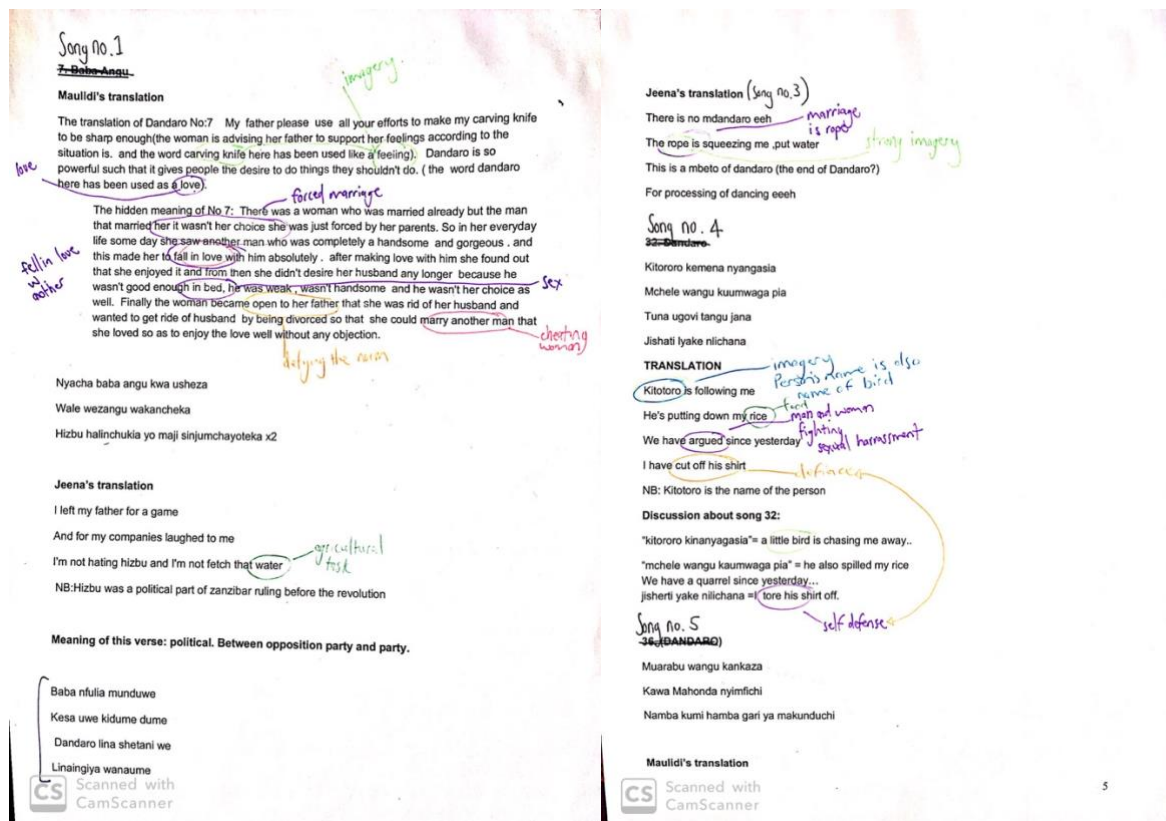 Song no.1
7. Baba Angu
imagery.
Maulidi's translation
The translation of Dandaro No:7 My father please use all your efforts to make my carving knife
to be sharp enough(the woman is advising her father to support her feelings according to the
situation is. and the word carving knife here has been used like a feeling). Dandaro is so
powerful such that it gives people the desire to do things they shouldn't do. ( the word dandaro
here has been used as a love).
love
forced marriage
The hidden meaning of No 7: There was a woman who was married already but the man
that married her it wasn't her choice she was just forced by her parents. So in her everyday
life some day she saw another man who was completely a handsome and gorgeous . and
this made her to fall in love with him absolutely . after making love with him she found out
that she enjoyed it and from then she didn't desire her husband any longer because he
wasn't good enough in bed, he was weak , wasn't handsome and he wasn't her choice as
well. Finally the woman became open to her father that she was rid of her husband and
wanted to get ride of husband by being divorced so that she could marry another man that
she loved so as to enjoy the love well without any objection.
fell in love
w
another
sex
cheating
woman
defying the norm
Nyacha baba angu kwa usheza
Wale wezangu wakancheka
Hizbu halinchukia yo maji sinjumchayoteka x2
Jeena's translation
I left my father for a game
And for my companies laughed to me
I'm not hating hizbu and I'm not fetch that water
agricultural
task
NB:Hizbu was a political part of zanzibar ruling before the revolution
Meaning of this verse: political. Between opposition party and party.
Baba nfulia munduwe
Kesa uwe kidume dume
Dandaro lina shetani we
Linaingiya wanaume
CS Scanned with
CamScanner
Jeena's translation (Song no.3)
There is no mdandaro eeh
marriage
is rope
The rope is squeezing me ,put water
strong imagery
This is a mbeto of dandaro (the end of Dandaro?)
For processing of dancing eeeh
Song no. 4
32. Dandaro
Kitororo kemena nyangasia
Mchele wangu kuumwaga pia
Tuna ugovi tangu jana
Jishati lyake nlichana
TRANSLATION
imagery
Person's name is also
name of bird
Kitotoro is following me
He's putting down my rice
food
man and woman
fighting
sexual harrassment
We have argued since yesterday
I have cut off his shirt
defiance
NB: Kitotoro is the name of the person
Discussion about song 32:
"kitororo kinanyagasia"= a little bird is chasing me away..
"mchele wangu kaumwaga pia" = he also spilled my rice
We have a quarrel since yesterday...
jisherti yake nilichana =I tore his shirt off.
self defense
Song no. 5
36. (DANDARO)
Muarabu wangu kankaza
Kawa Mahonda nyimfichi
Namba kumi hamba gari ya makunduchi
Maulidi's translation
5
CS Scanned with
CamScanner